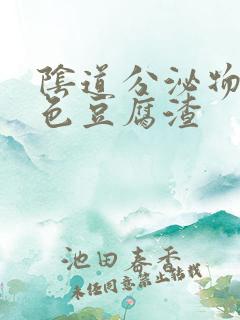 陰道分泌物
色豆腐渣
池田春香
未经同意禁止转载